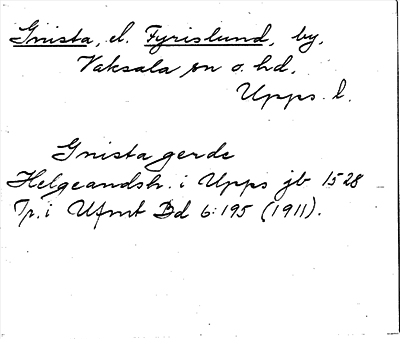 Gnista, el. Fyrislund, by,
Vaksala sn o. hd.
Upps. l.
Gnista gerde
Helgeandsh. i Upps jb 1528
Tr. i Ufmt Bd 6:195 (1911).